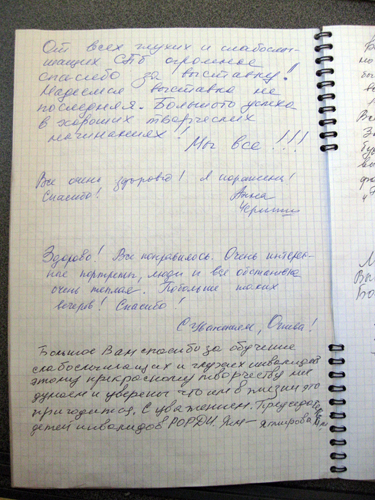 От всех глухих и слабослы-
шащих СПб огромное
спасибо за выставку!
Надеемся выставка не
последняя. Большого успеха
в хороших творческих
начинаниях!
Мы все!!!
Все очень здорово! Я поражена!
Спасибо!
Анна
Здорово! Все понравилось. Очень интерес-
ные портреты, люди и вся обстановка
очень теплая. Побольше таких
вечеров! Спасибо!
С уважением,
Большое Вам спасибо за обучение
слабослышащих и глухих инвалидов
этому прекрасному творчеству мы
думаем и уверены что им в жизни это
пригодится. С уважением. Председатель
детей инвалидов РОРДИ.